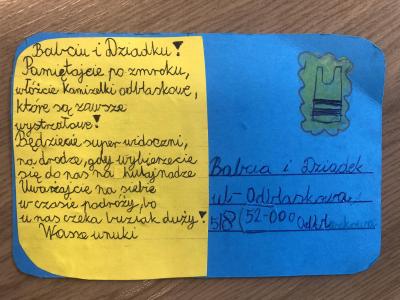 Babciu i Dziadku!
Pamiętajcie po zmroku,
włóżcie kamizelki odblaskowe,
które są zawsze
wystrzałowe!
Będziecie super widoczni,
na drodze, gdy wybierzecie
się do nas na
Uważajcie na siebie
w czasie podróży, bo
u nas czeka buziak duży!
Wasze wnuki
Babcia i Dziadek
ul. Odblaskowa
5/8 (52-000 Odblaskowo